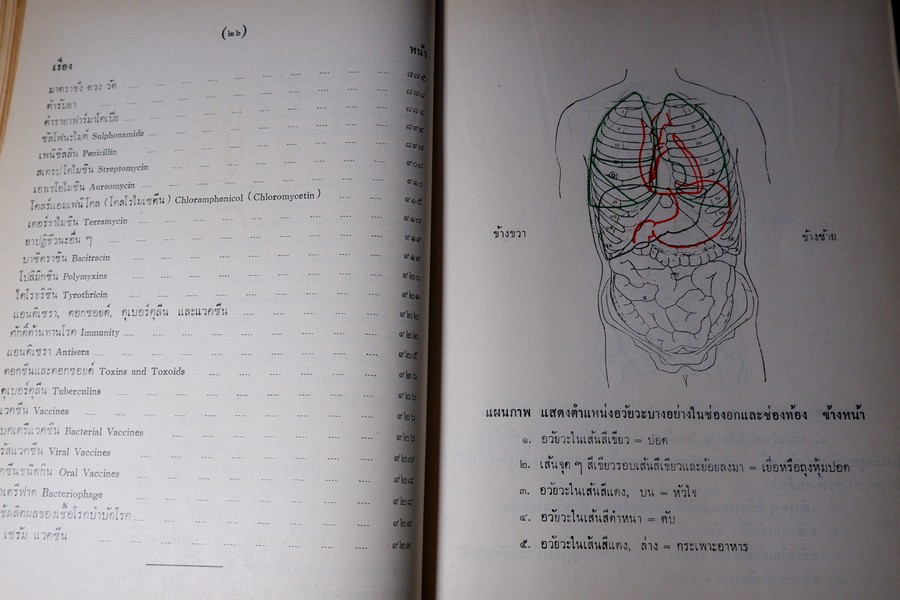 (๒๖)
เรื่อง หน้า
มาตราชั่ง ตวง วัด .... .... .... .... .... .... .... ๘๗๕
ตำรับยา .... .... .... .... .... .... .... .... ๘๗๘
ตำรายาฟาร์มาโคเปีย .... .... .... .... .... .... .... ๘๘๔
ซัลโฟนะไมด์ Sulphonamide .... .... .... .... .... .... ๘๙๔
เพนิซิลลิน Penicillin .... .... .... .... .... .... .... ๘๙๗
สเตรปโตไมซิน Streptomycin .... .... .... .... .... .... ๙๐๘
เอาเรโอไมซิน Aureomycin .... .... .... .... .... .... ๙๑๐
โคลร์แอมเฟนิโคล (โคลโรไมเซติน) Chloramphenicol (Chloromycetin) .... ๙๑๕
เตอร์ราไมซิน Terramycin .... .... .... .... .... .... ๙๑๗
ยาปฏิชีวนะอื่น ๆ .... .... .... .... .... .... .... ๙๑๙
บาซิตราซิน Bacitracin .... .... .... .... .... .... .... ๙๑๙
โปลิมิกซิน Polymyxins .... .... .... .... .... .... .... ๙๒๐
ไตโรธริซิน Tyrothricin .... .... .... .... .... .... .... ๙๒๑
แอนติเซรา, ตอกซอยด์, ตูเบอร์คุลิน และแวคซีน .... .... .... .... ๙๒๒
ศักดิ์ต้านทานโรค Immunity .... .... .... .... .... .... ๙๒๒
แอนติเซรา Antisera .... .... .... .... .... .... .... ๙๒๕
ตอกซินและตอกซอยด์ Toxins and Toxoids .... .... .... .... .... ๙๒๖
ตูเบอร์คุลิน Tuberculins .... .... .... .... .... .... ๙๒๖
แวคซีน Vaccines .... .... .... .... .... .... .... ๙๒๖
บคเตรีแวคซีน Bacterial Vaccines .... .... .... .... .... ๙๒๖
รัสแวคซีน Viral Vaccines .... .... .... .... .... .... ๙๒๗
คซีนชนิดกิน Oral Vaccines .... .... .... .... .... .... ๙๒๘
เตรีฟาด Bacteriophage .... .... .... .... .... .... ๙๒๘
ช้ผลิตผลของเชื้อโรคบำบัดโรค .... .... .... .... .... .... ๙๒๙
เซรัม แวคซีน .... .... .... .... .... .... .... ๙๒๙
ข้างขวา ข้างซ้าย
แผนภาพ แสดงตำแหน่งอวัยวะบางอย่างในช่องอกและช่องท้อง ข้างหน้า
๑. อวัยวะในเส้นสีเขียว = ปอด
๒. เส้นจุด ๆ สีเขียวรอบเส้นสีเขียวและย้อยลงมา = เยื่อหรือถุงหุ้มปอด
๓. อวัยวะในเส้นสีแดง, บน = หัวใจ
๔. อวัยวะในเส้นสีดำหนา = ตับ
๕. อวัยวะในเส้นสีแดง, ล่าง = กระเพาะอาหาร